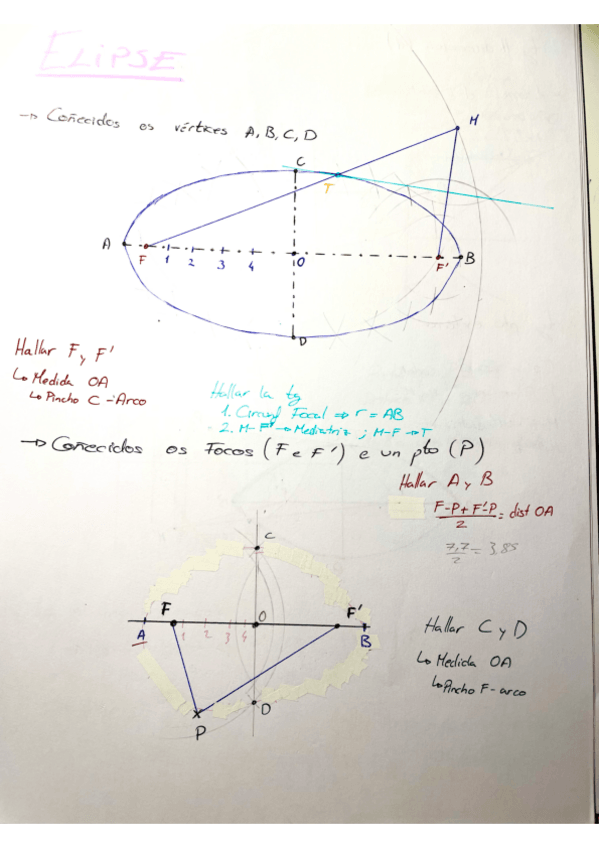 ELIPSE
→ Coñecidos os vértices A, B, C, D
M
C
T
A
F 1 2 3 4 O F' B
D
Hallar F y F'
↳ Medida OA
↳ Pincho C - Arco
Hallar la tg
1. Circunf Focal ⇒ r = AB
2. M-F' → Mediatriz ; M-F → T
→ Coñecidos os Focos (F e F') e un pto (P)
Hallar A y B
F-P + F'-P / 2 = dist OA
7,7 / 2 = 3,85
C
F O F'
A 1 2 3 4 B
D
P
Hallar C y D
↳ Medida OA
↳ Pincho F - arco